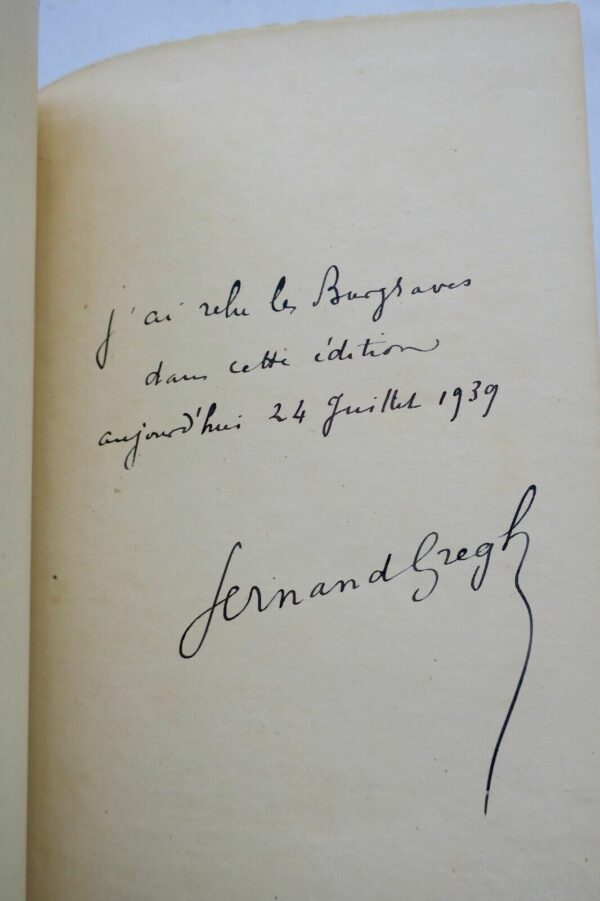 j'ai relu les Burgraves
dans cette édition
aujourd'hui 24 Juillet 1939
Fernand Gregh